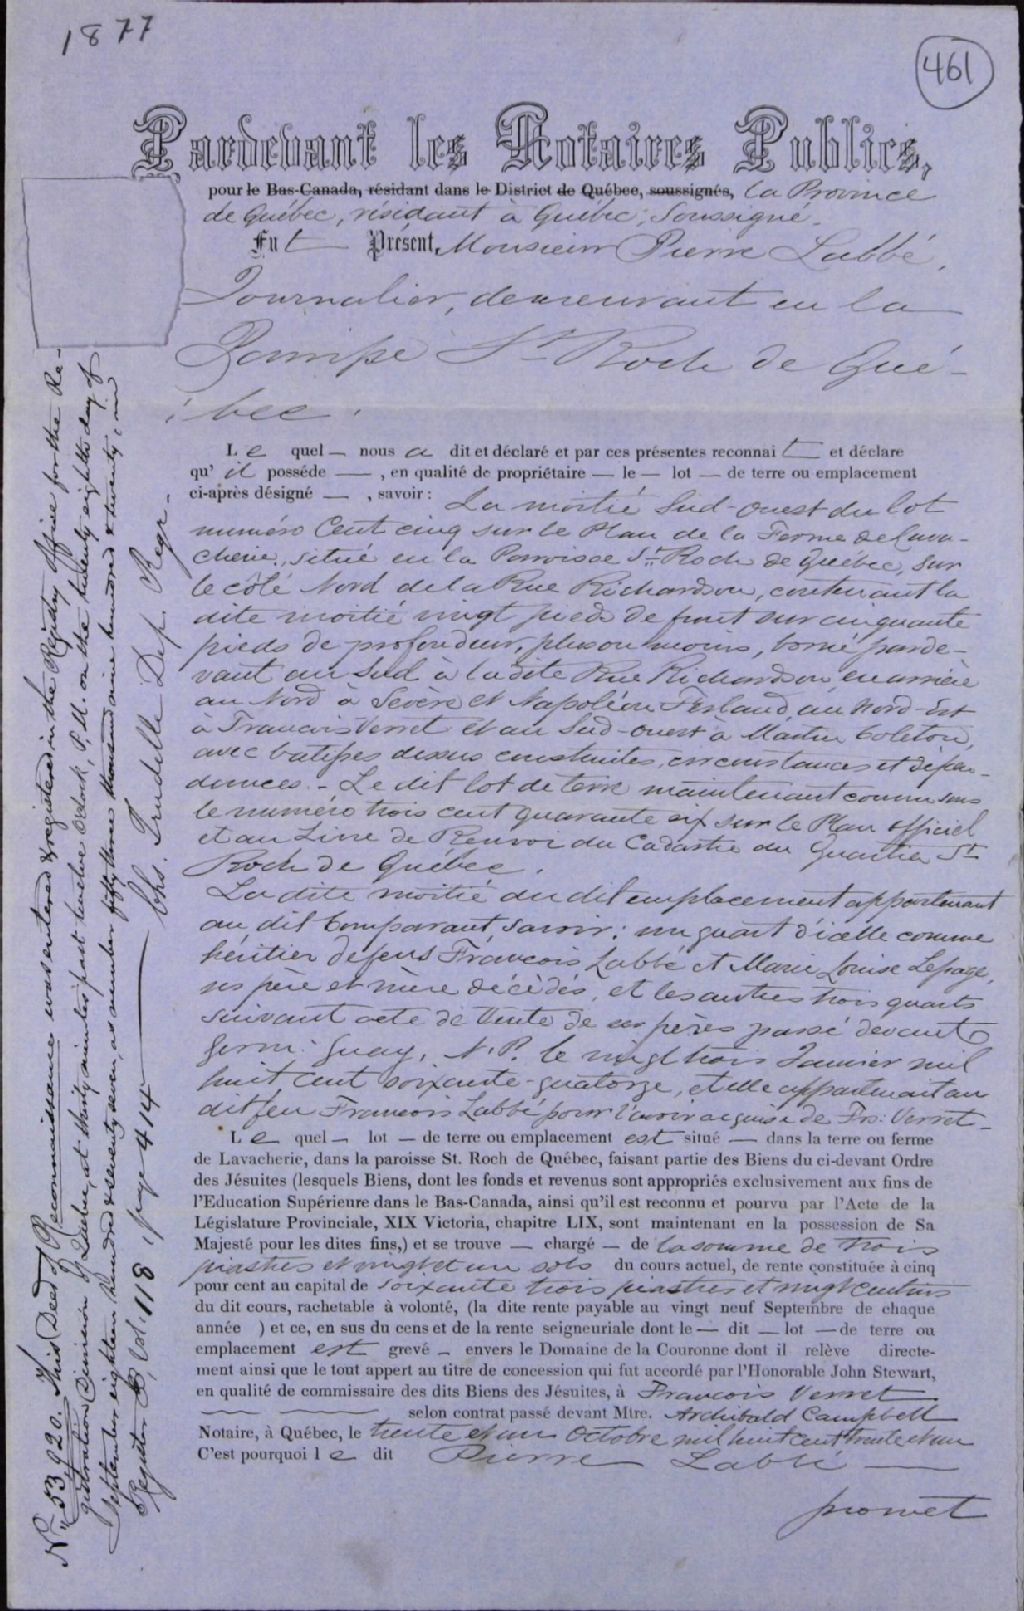 1877
461
Pardevant les Notaires Publics,
pour le Bas-Canada, résidant dans le District de Québec, soussignés, la Province
de Québec, résidant à Québec, Soussigné.
Fut Présent, Monsieur Pierre Labbé,
Journalier, demeurant en la
Paroisse St. Roch de Qué-
bec.
Le quel — nous a dit et déclaré et par ces présentes reconnait et déclare
qu' il posséde — , en qualité de propriétaire — le — lot — de terre ou emplacement
ci-après désigné — , savoir : La moitié Sud-Ouest du lot
numéro Cent cinq sur le Plan de la Ferme de Lava-
cherie, situé en la Paroisse St. Roch de Québec, sur
le côté Nord de la Rue Richardson, contenant la
dite moitié vingt pieds de front sur cinquante
pieds de profondeur, plus ou moins, borné parde-
vant au Sud à la dite Rue Richardson en arrière
au Nord à Sevère et Napoléon Ferland, au Nord-Est
à Francois Verret et au Sud-ouest à Martin
avec batisses dessus construites, circonstances et dépen-
dances. - Le dit lot de terre maintenant connu sous
le numéro trois cent quarante six sur le Plan officiel
et au Livre de Renvoi du Cadastre du Quartier St.
Roch de Québec.
La dite moitié du dit emplacement appartenant
au dit Comparant, savoir: un quart d'icelle comme
héritier de feus François Labbé et Marie Louise Lepage,
ses père et mère décédés, et les autres trois quarts
suivant acte de Vente de ses frères passé devant
Germ. Guay, N.P. le vingt trois Janvier mil
huit cent soixante-quatorze, et elle appartenait au
dit feu Francois Labbé pour l'avoir acquise de Frs. Verret -
Le quel — lot — de terre ou emplacement est situé — dans la terre ou ferme
de Lavacherie, dans la paroisse St. Roch de Québec, faisant partie des Biens du ci-devant Ordre
des Jésuites (lesquels Biens, dont les fonds et revenus sont appropriés exclusivement aux fins de
l'Education Supérieure dans le Bas-Canada, ainsi qu'il est reconnu et pourvu par l'Acte de la
Législature Provinciale, XIX Victoria, chapitre LIX, sont maintenant en la possession de Sa
Majesté pour les dites fins,) et se trouve — chargé — de la somme de trois
piastres et vingt et un sols du cours actuel, de rente constituée à cinq
pour cent au capital de soixante trois piastres et vingt centins
du dit cours, rachetable à volonté, (la dite rente payable au vingt neuf Septembre de chaque
année ) et ce, en sus du cens et de la rente seigneuriale dont le — dit — lot — de terre ou
emplacement est grevé — envers le Domaine de la Couronne dont il relève directe-
ment ainsi que le tout appert au titre de concession qui fut accordé par l'Honorable John Stewart,
en qualité de commissaire des dits Biens des Jésuites, à Francois Verret
selon contrat passé devant Mtre. Archibald Campbell
Notaire, à Québec, le trente et un Octobre mil huit cent trente et un
C'est pourquoi le dit Pierre Labbé
promet
No 53,920. This Deed of Reconnaissance was entered & registered in the Registry Office for the Re-
gistration Division of Quebec, at thirty minutes past twelve o'clock, P.M. on the twenty eighth day of
September eighteen hundred & seventy seven, as number fifty three thousand nine hundred & twenty, in
Register B, Vol. 118, page 414 — Chs. Trudelle Dep. Regr.